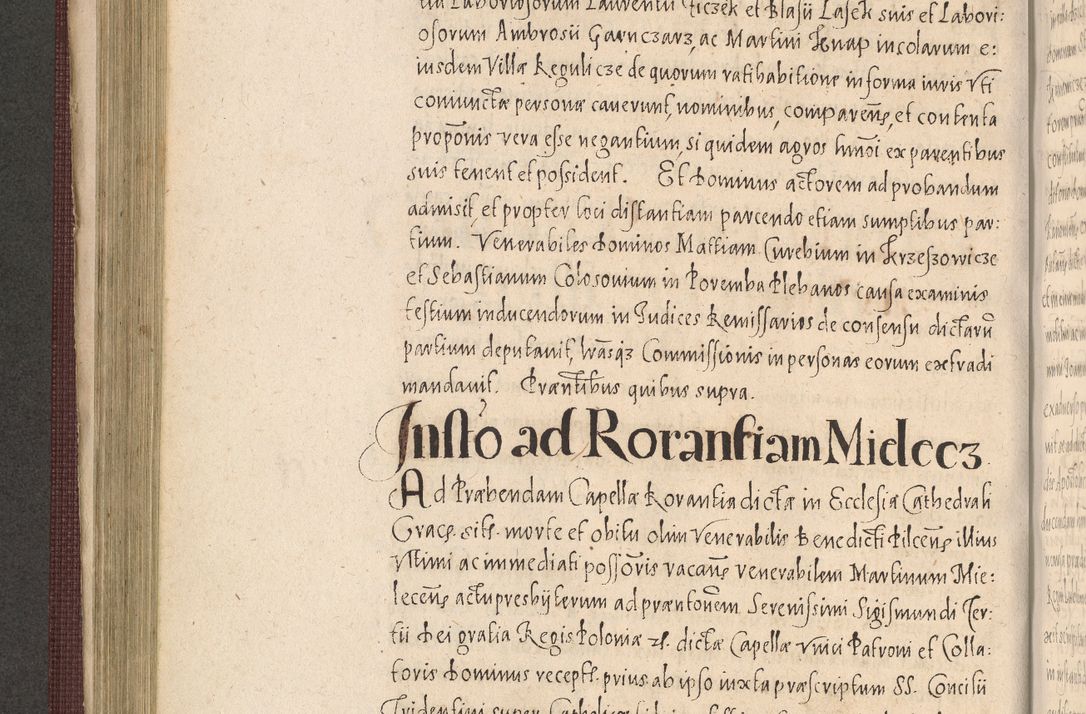 tia Laboriosorum Laurentii Ticzek et Blasii Lasek suis et Labori:
osorum Ambrosii Garnczarz, ac Martini Knap incolarum e:
iusdem Villæ Regulicze de quorum ratihabitione in forma iuris vti
coniunctæ personæ cauerunt, nominibus, comparen̄, et contenta
propōnis vera esse negantium, si quidem agros hmōi ex parentibus
suis tenent et possident. Et Dominus actorem ad probandum
admisit, et propter loci distantiam parcendo etiam sumptibus par:
tium. Venerabiles Dominos Mattiam Curebium in Krzeszowicze
et Sebastianum Colosouium in Poremba Plebanos causa examinis
testium inducendorum in Iudices Remissarios de consensu dictarū
partium deputauit, lrāsq3 Commissionis in personas eorum extradi
mandauit. Præntibus quibus supra.
Insto ad Rorantiam Mielecz
Ad Præbendam Capellæ Rorantia dictæ in Ecclesia Cathedrali
Crac. sit. morte et obitu olim Venerabilis Benedicti Pilcen̄ illius
Vltimi ac immediati possōris vacan̄ venerabilem Martinum Mie:
lecen̄ actu presbyterum ad præntōnem Serenissimi Sigismundi Ter:
tii Dei gratia Regis Poloniæ etc. dictæ Capellæ vnici Patroni et Colla:
toris Dominus recept. prius ab ipso iuxta præscriptum SS. Concilii
Tridentini super Catholica